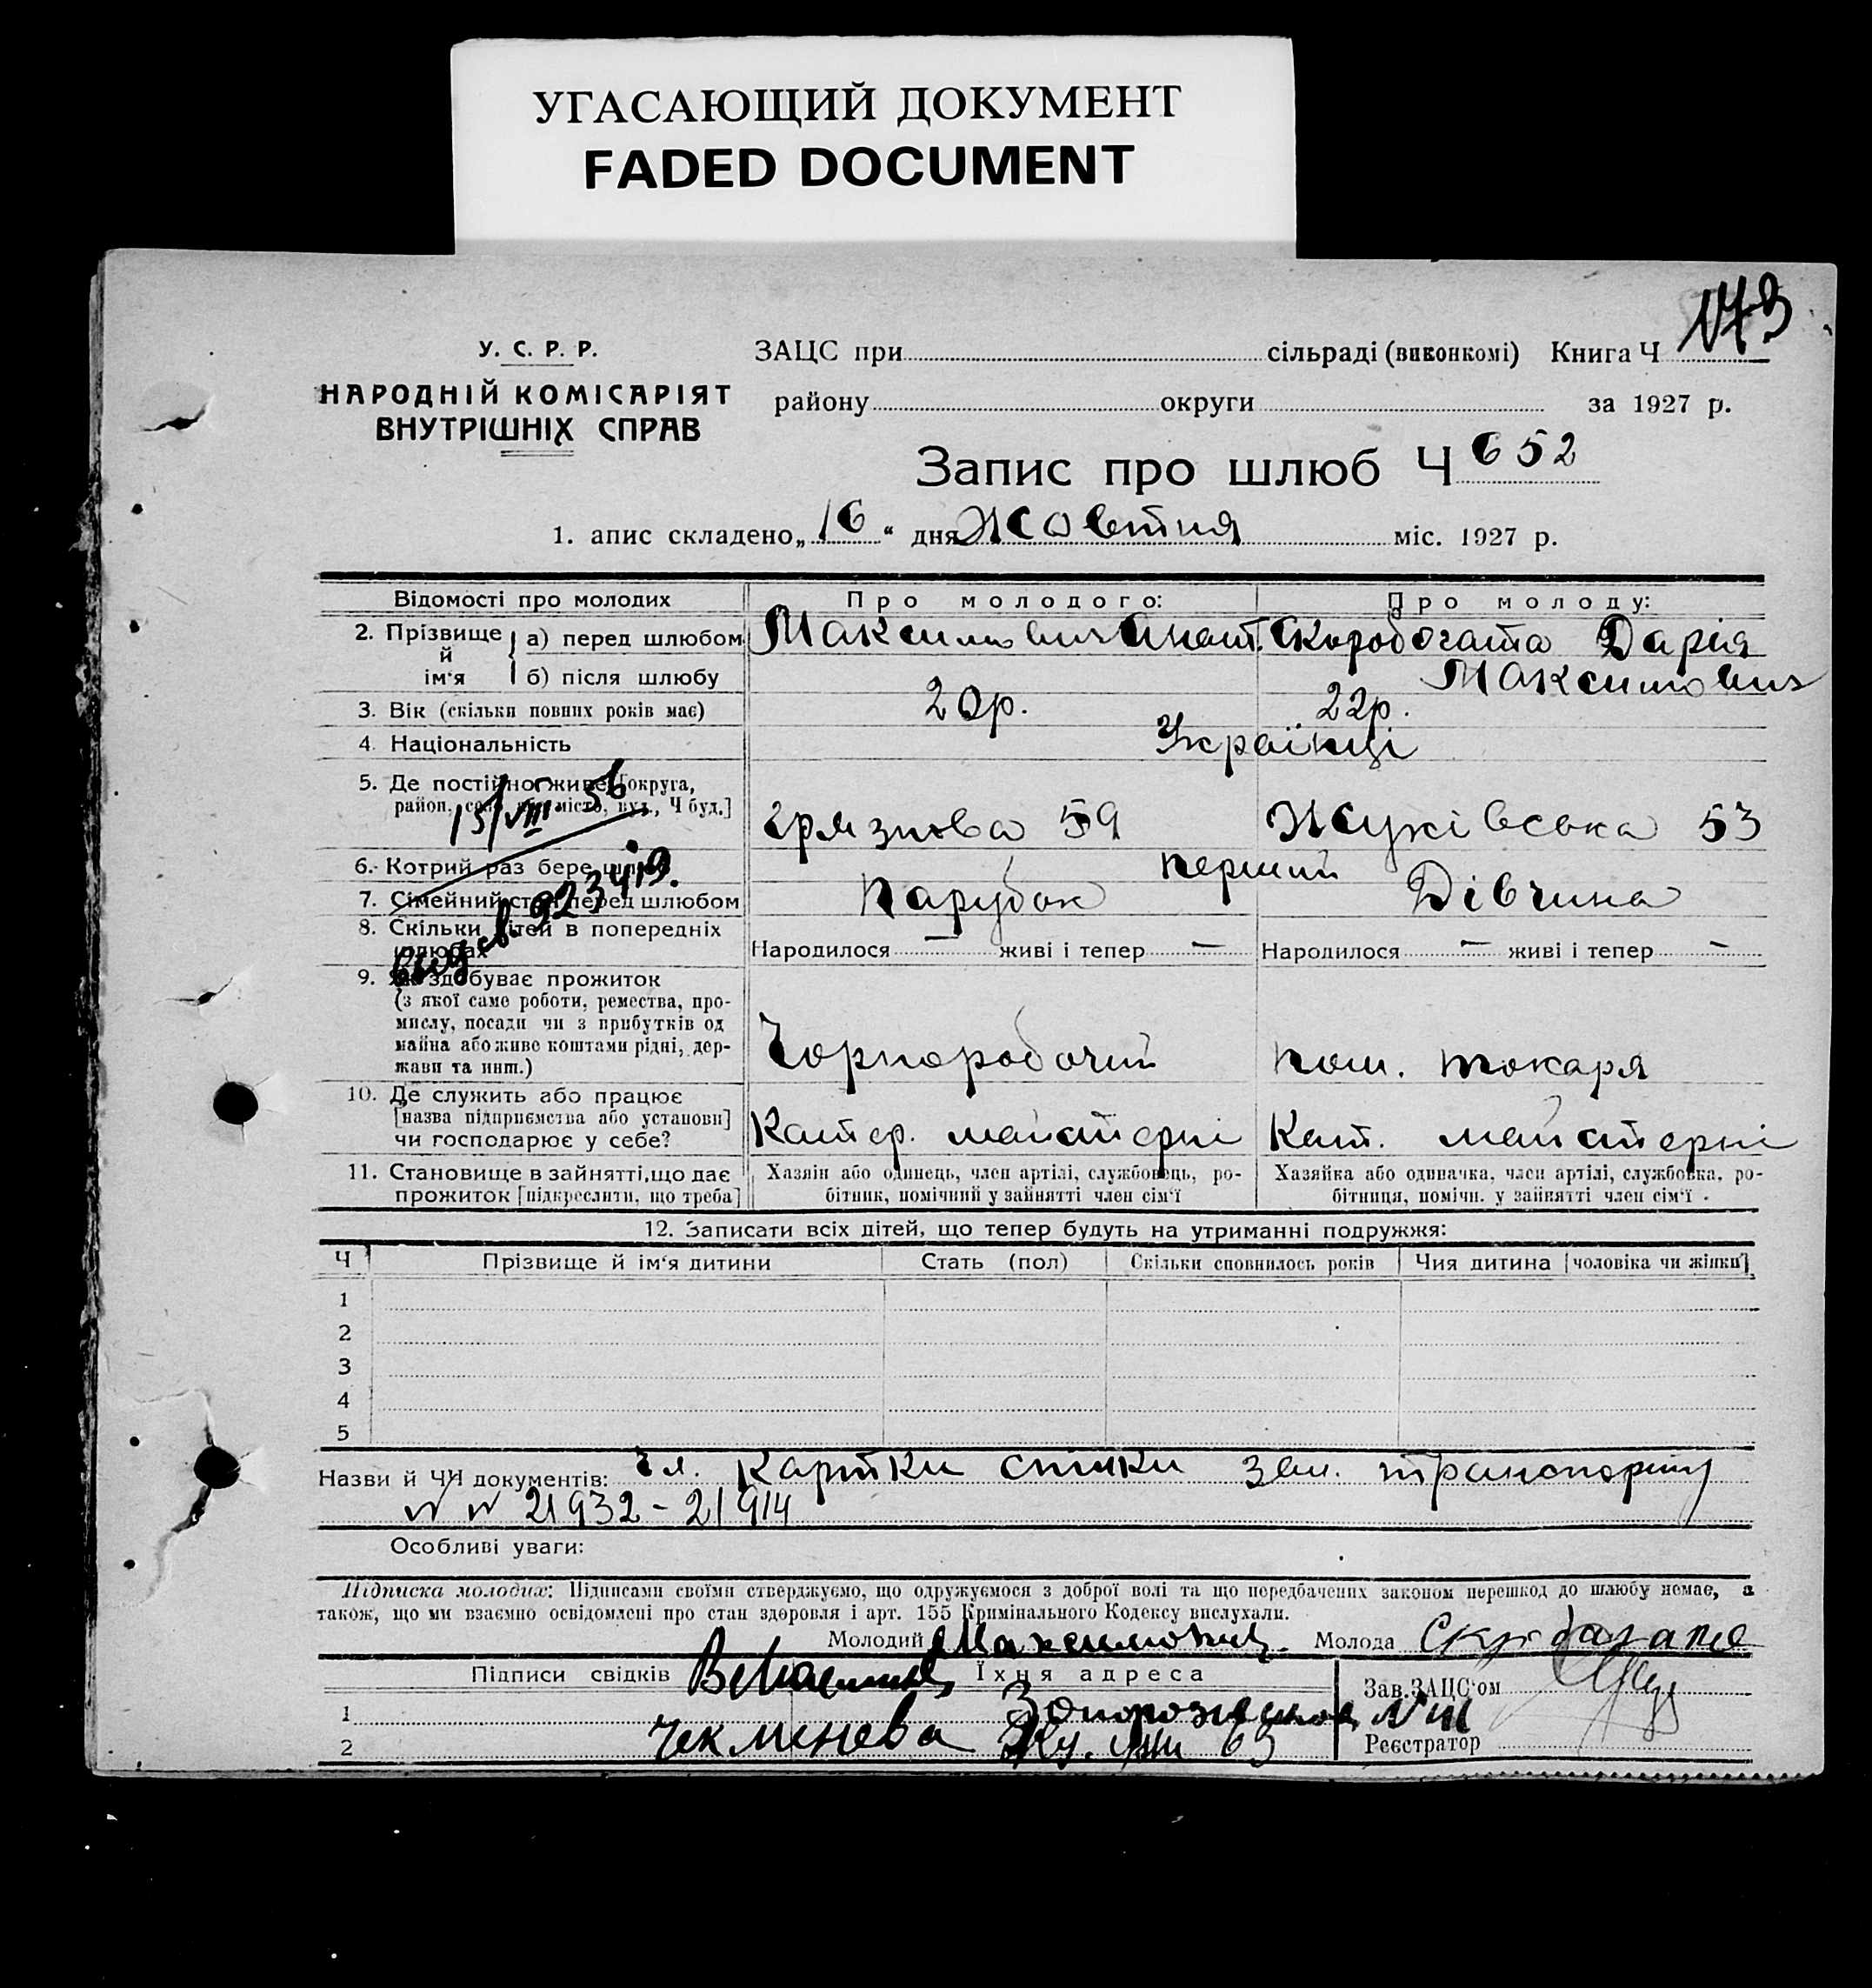 УГАСАЮЩИЙ ДОКУМЕНТ
FADED DOCUMENT
173
У. С. Р. Р.
НАРОДНІЙ КОМІСАРІЯТ
ВНУТРІШНІХ СПРАВ
ЗАЦС при сільраді (виконкомі) Книга Ч
району округи за 1927 р.
Запис про шлюб Ч 652
1. апис складено „16“ дня Жовтня міс. 1927 р.
Відомості про молодих Про молодого: Про молоду:
2. Прізвище й ім'я а) перед шлюбом Максимович Анат. Скоробогата Дарія
б) після шлюбу Максимович
3. Вік (скільки повних років має) 20р. 22р.
4. Національність Українці
5. Де постійно живе [округа,
район, село або місто, вул., Ч буд.] Грязнова 59 Жуківська 53
15/VIII 56
6. Котрий раз бере шлюб перший
7. Сімейний стан перед шлюбом Парубок Дівчина
8. Скільки дітей в попередніх
шлюбах Народилося — живі і тепер — Народилося — живі і тепер —
9. Як здобуває прожиток
(з якої саме роботи, ремества, про-
мислу, посади чи з прибутків од
майна або живе коштами рідні, дер-
жави та инш.) Чорноробочий пом. токаря
10. Де служить або працює
[назва підприємства або установи]
чи господарює у себе? майстерні майстерні
11. Становище в зайнятті, що дає
прожиток [підкреслити, що треба]
Хазяїн або одинець, член артілі, службовець, ро-
бітник, помічний у зайнятті член сім'ї
Хазяйка або одиначка, член артілі, службовка, ро-
бітниця, помічн. у зайнятті член сім'ї .
12. Записати всіх дітей, що тепер будуть на утриманні подружжя:
Ч Прізвище й ім'я дитини Стать (пол) Скільки сповнилось років Чия дитина [чоловіка чи жінки]
1
2
3
4
5
Назви й ЧЧ документів: чл. картки спілки зал. транспорту
№ № 21932 - 21914
Особливі уваги:
Підписка молодих: Підписами своїми стверджуємо, що одружуємося з доброї волі та що передбачених законом перешкод до шлюбу немає, а
також, що ми взаємно освідомлені про стан здоровля і арт. 155 Кримінального Кодексу вислухали.
Молодий Максимович Молода
Підписи свідків Їхня адреса Зав. ЗАЦС'ом
1
2 Чекменева 63 Реєстратор